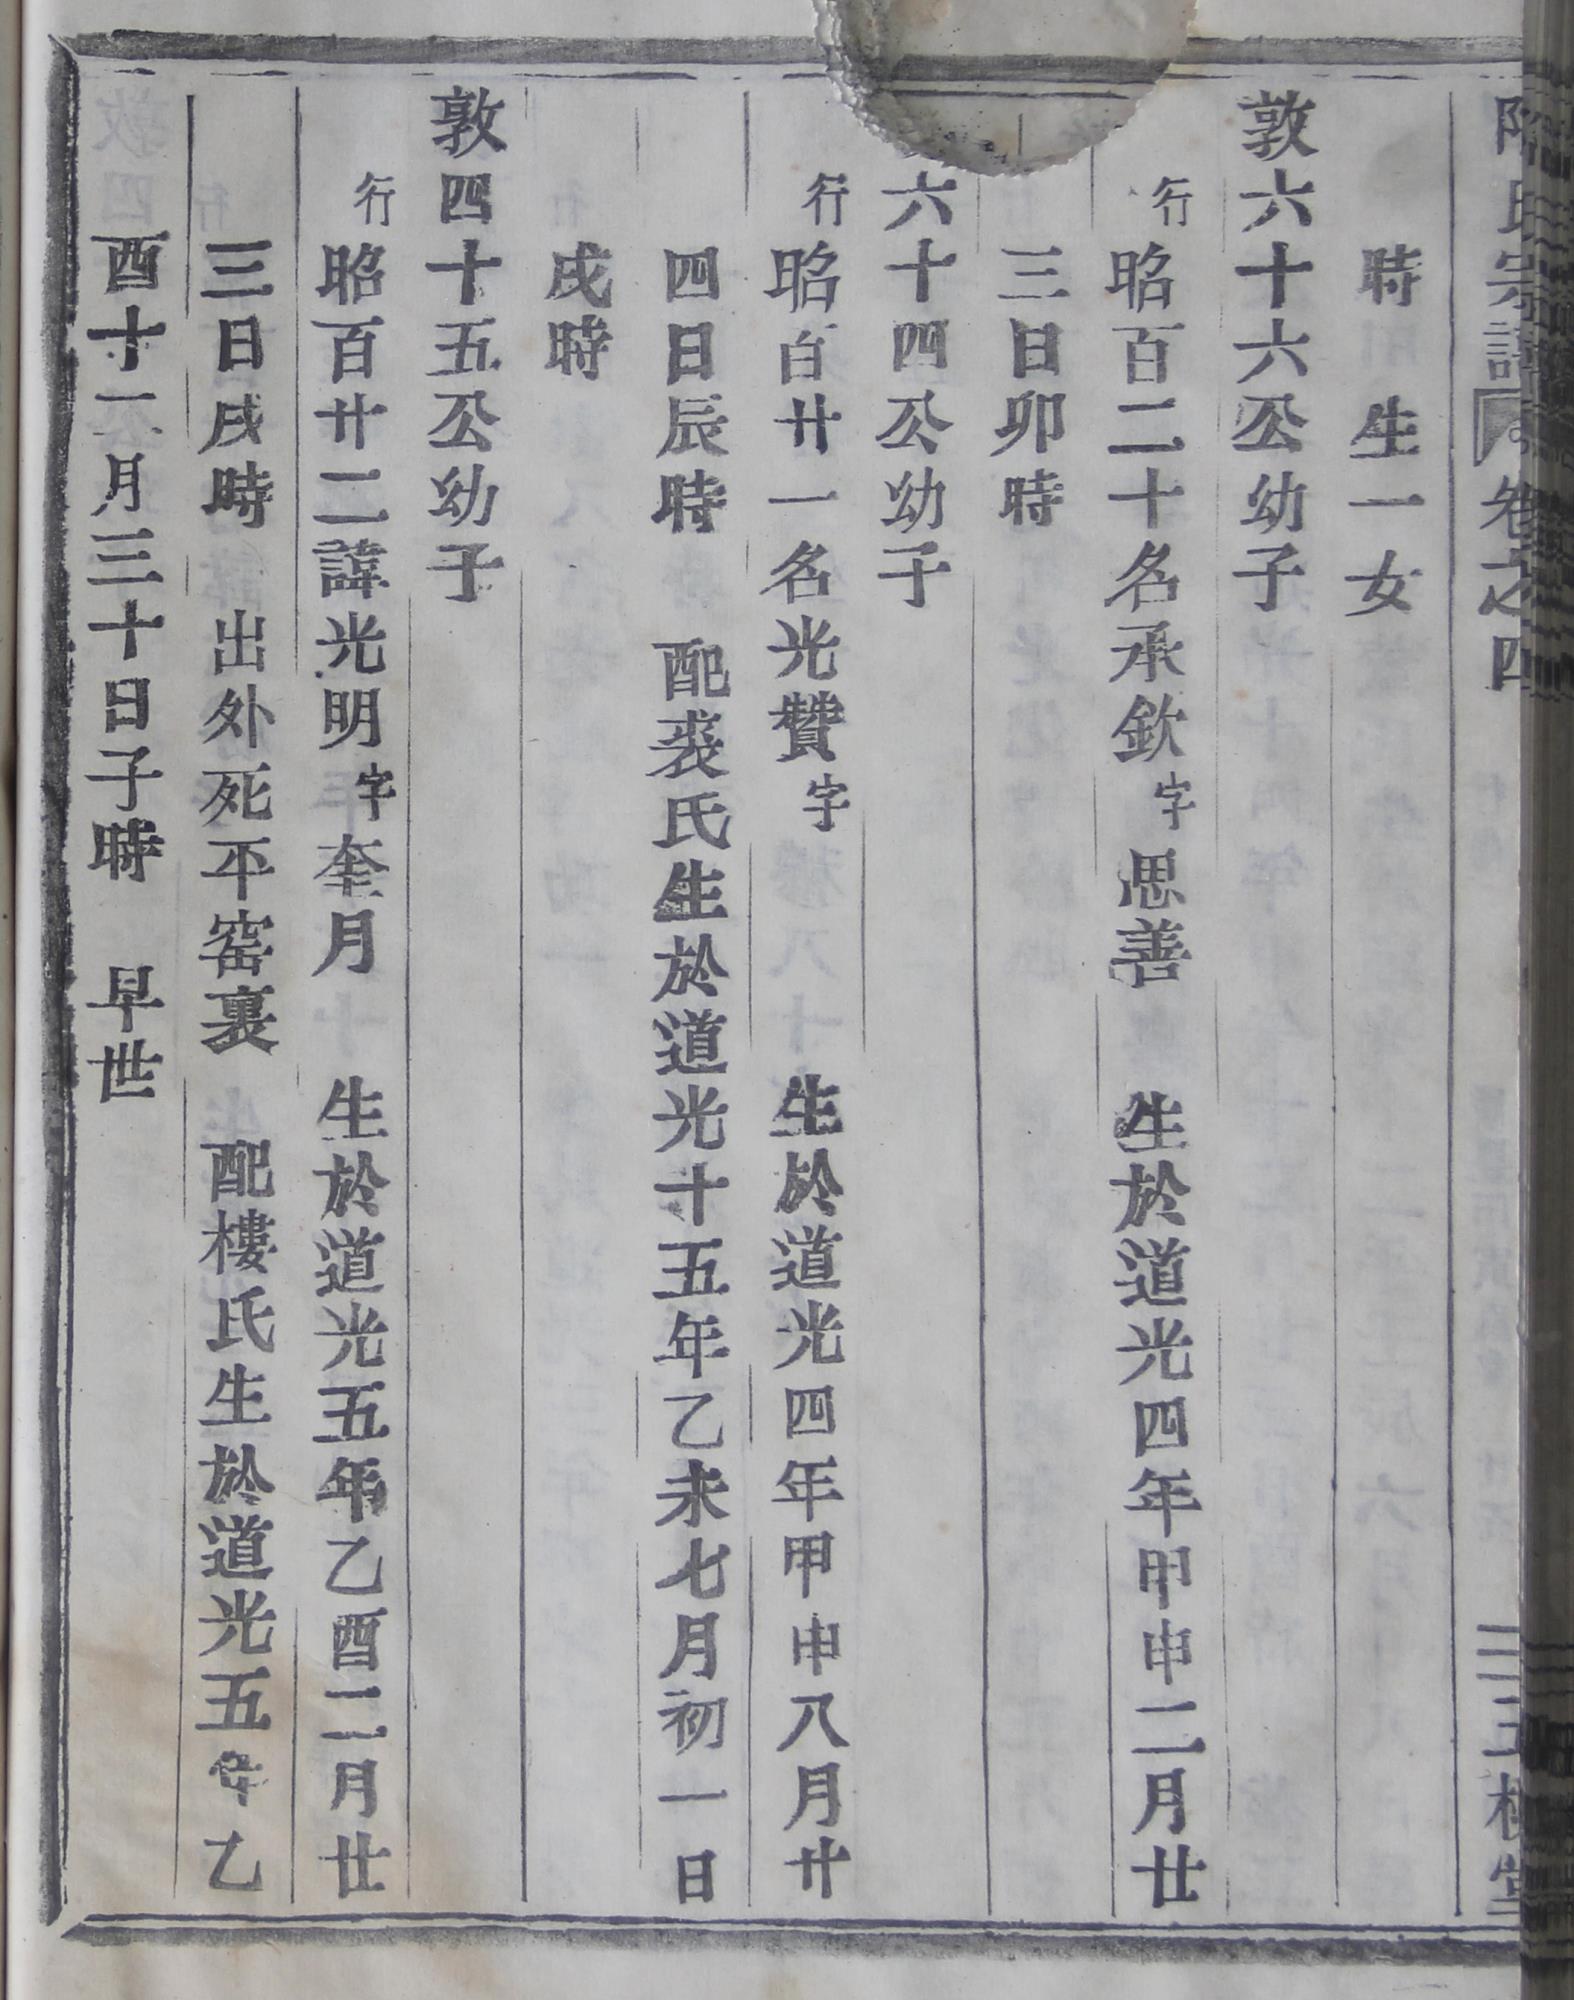 氏宗譜 卷之四 三五
時 生一女
敦六十六公幼子
行昭百二十名承欽字思善 生於道光四年甲申二月廿
三日卯時
六十四公幼子
行昭百廿一名光贊字 生於道光四年甲申八月廿
四日辰時 配裘氏生於道光十五年乙未七月初一日
戌時
敦四十五公幼子
行昭百廿二諱光明字奎月 生於道光五年乙酉二月廿
三日戌時 出外死平窑裏 配樓氏生於道光五年乙
酉十一月三十日子時 早世